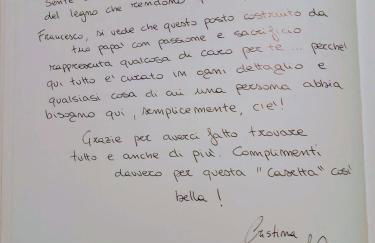 sente
del legno che rendono
Francesco, si vede che questo posto costruito da
tuo papa' con passione e sacrificio
rappresenta qualcosa di caro per te ... perche'
qui tutto e' curato in ogni dettaglio e
qualsiasi cosa di cui una persona abbia
bisogno qui, semplicemente, c'e'!
Grazie per averci fatto trovare
tutto e anche di piu'. Complimenti
davvero per questa "Casetta" cosi'
bella!
Cristina